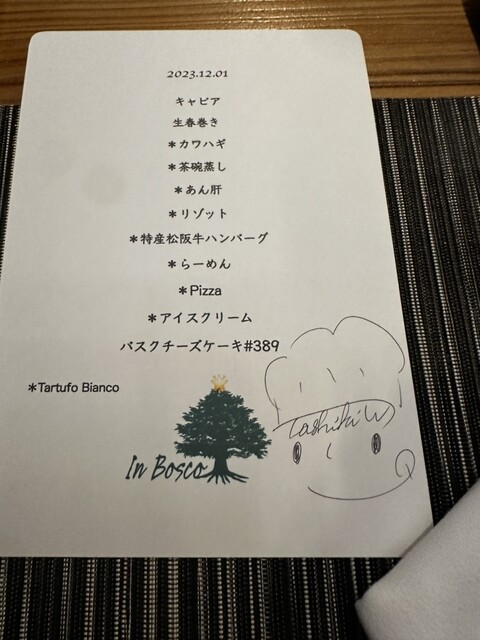 2023.12.01
キャビア
生春巻き
＊カワハギ
＊茶碗蒸し
＊あん肝
＊リゾット
＊特産松阪牛ハンバーグ
＊らーめん
＊Pizza
＊アイスクリーム
バスクチーズケーキ#389
＊Tartufo Bianco
In Bosco